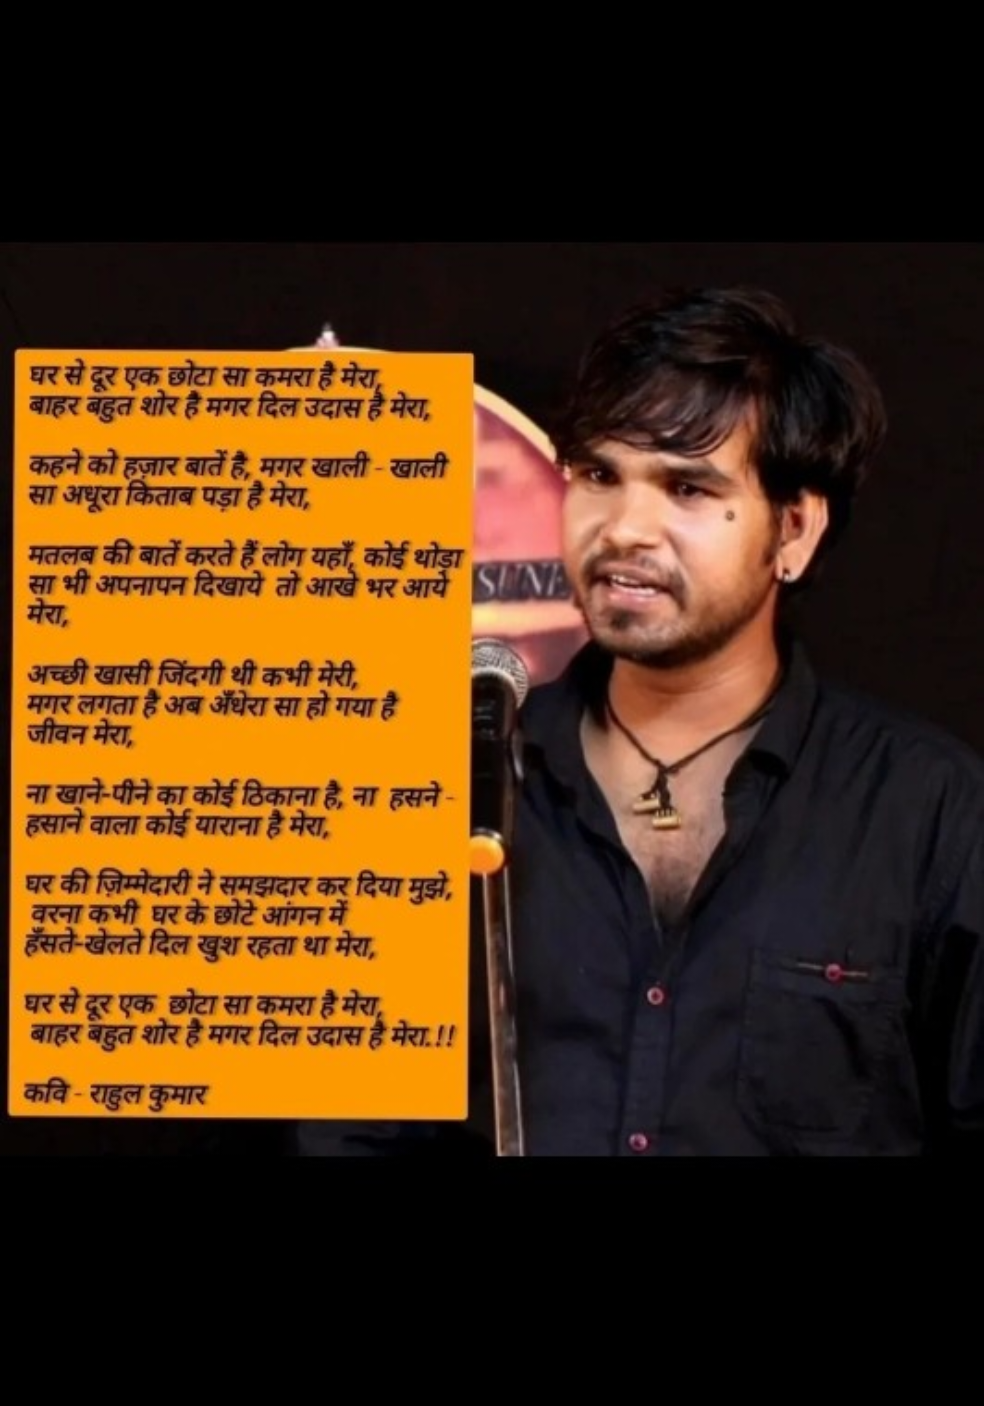 घर से दूर एक छोटा सा कमरा है मेरा,
बाहर बहुत शोर है मगर दिल उदास है मेरा,
कहने को हज़ार बातें है, मगर खाली - खाली
सा अधूरा किताब पड़ा है मेरा,
मतलब की बातें करते हैं लोग यहाँ, कोई थोड़ा
सा भी अपनापन दिखाये तो आखे भर आये
मेरा,
अच्छी खासी जिंदगी थी कभी मेरी,
मगर लगता है अब अँधेरा सा हो गया है
जीवन मेरा,
ना खाने-पीने का कोई ठिकाना है, ना हसने -
हसाने वाला कोई याराना है मेरा,
घर की ज़िम्मेदारी ने समझदार कर दिया मुझे,
वरना कभी घर के छोटे आंगन में
हँसते-खेलते दिल खुश रहता था मेरा,
घर से दूर एक छोटा सा कमरा है मेरा,
बाहर बहुत शोर है मगर दिल उदास है मेरा.!!
कवि - राहुल कुमार